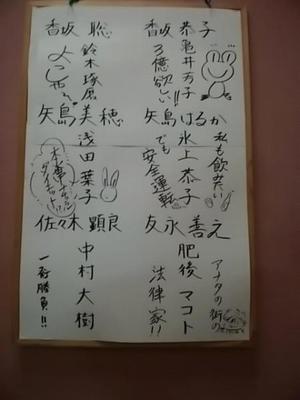 香坂 恭子
亀井芳子
3億欲しい!!
香坂 聡
鈴木琢磨
よっしゃぁ
矢島はるか
私も飲みたい
氷上恭子
でも安全運転
矢島美穂
浅田葉子
友永善え
アナタの街の
肥後 マコト
法律家!!
佐々木 顕良
中村大樹
一発勝負!!